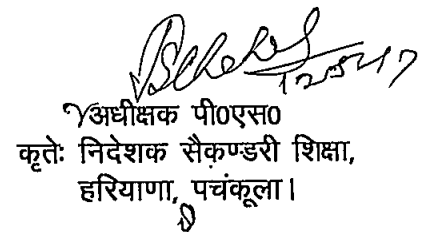 अधीक्षक पी0एस0
कृतेः निदेशक सैकण्डरी शिक्षा,
हरियाणा, पचंकूला।